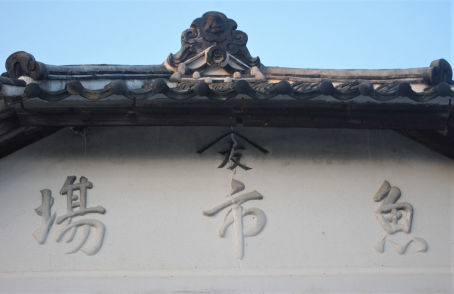 友
魚市場